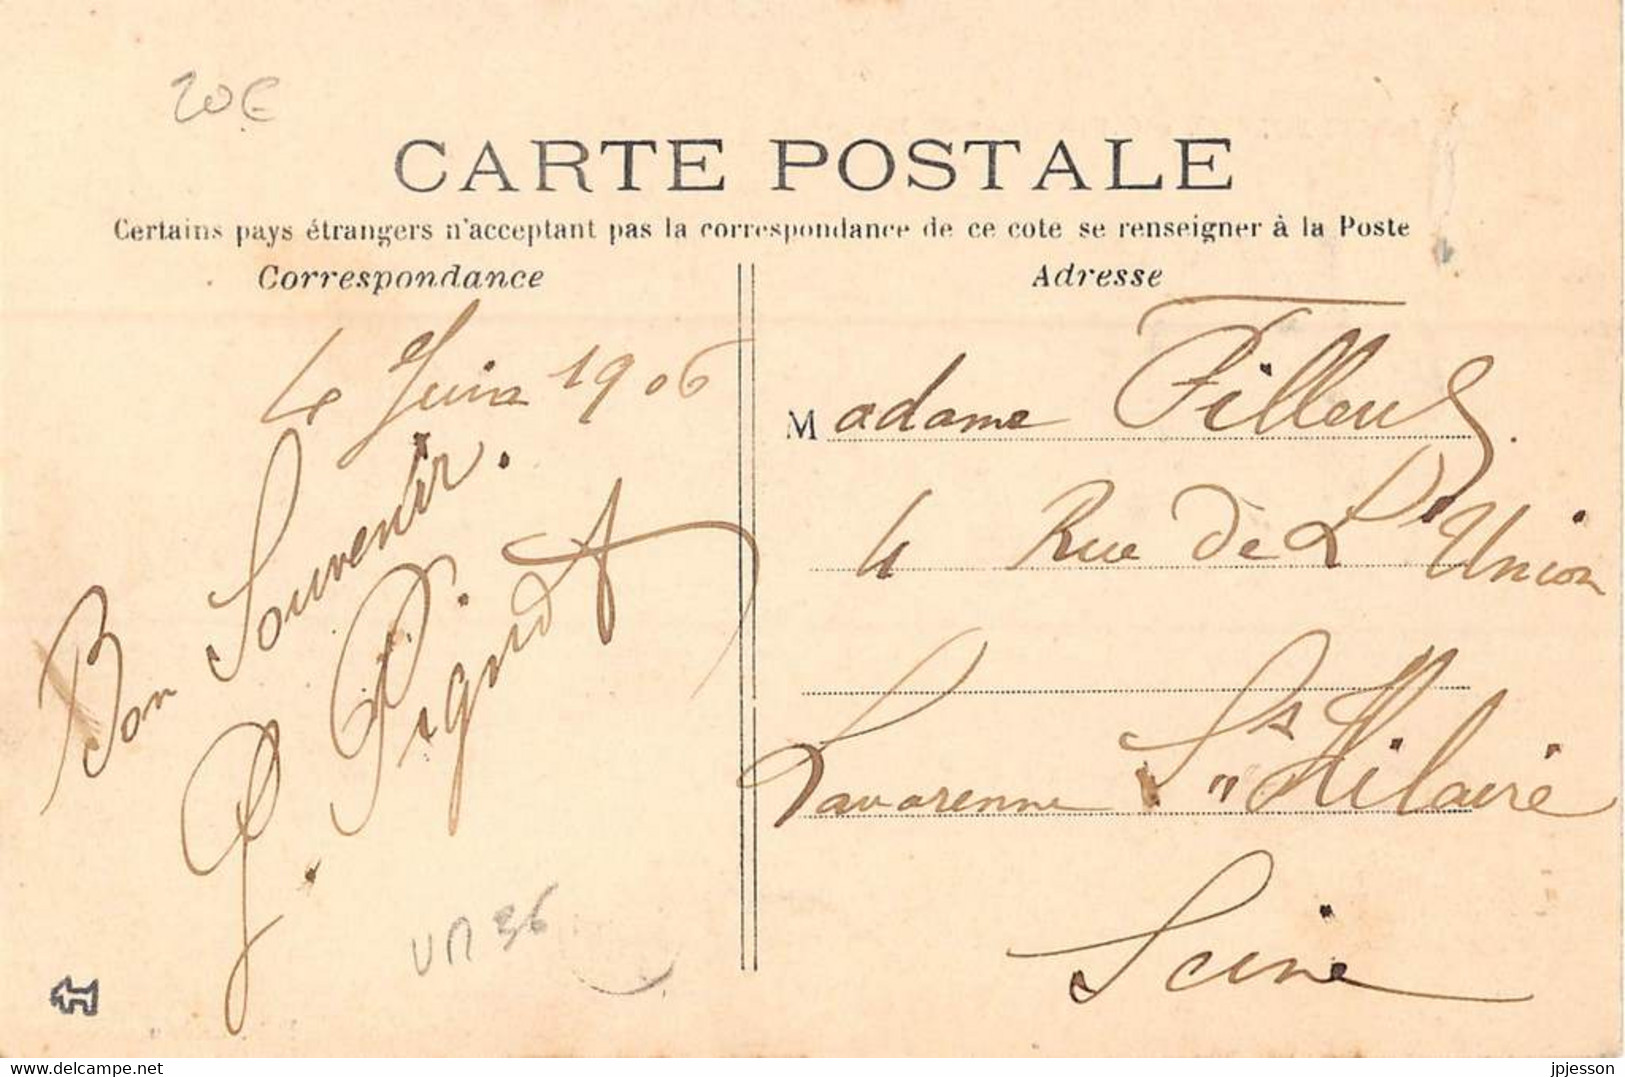 20€
CARTE POSTALE
Certains pays étrangers n'acceptant pas la correspondance de ce cote se renseigner à la Poste
Correspondance
4 Juin 1906
Bon Souvenir.
P.
VM 36
Adresse
Madame Filleul
4 Rue de L'Union
Lavarenne St Hilaire
Seine
Delcampe.net
jpjesson